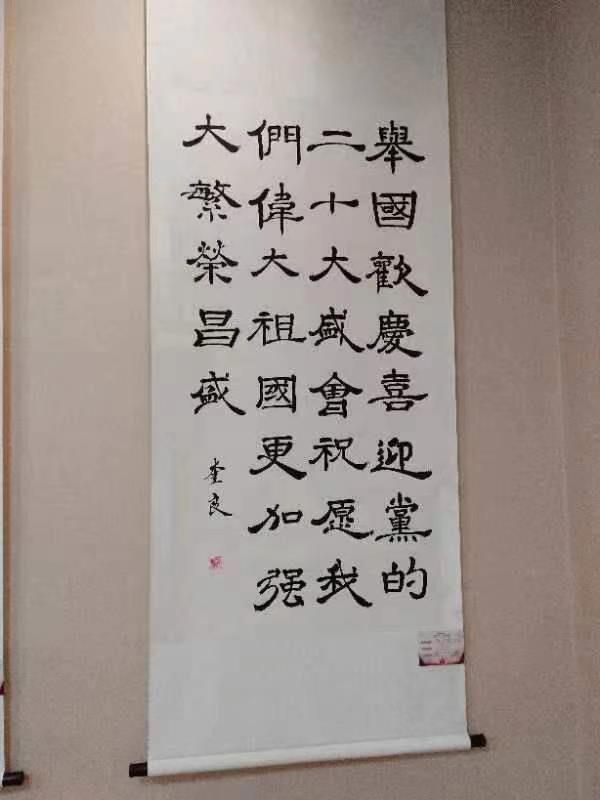 舉國歡慶喜迎黨的
二十大盛會祝愿我
們偉大祖國更加强
大繁榮昌盛
奎良